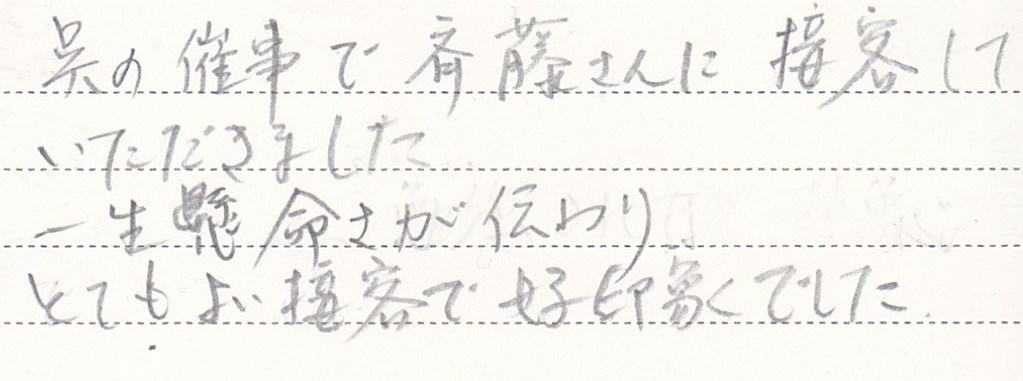 呉の催事で斉藤さんに接客して
いただきました
一生懸命さが伝わり
とてもよい接客で好印象でした.